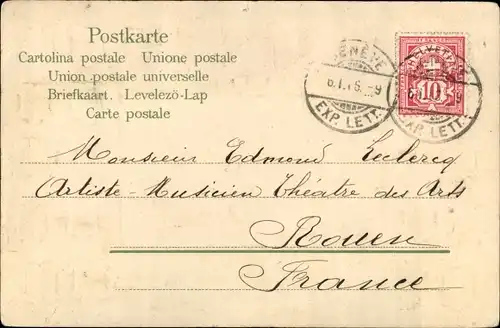 Postkarte
Cartolina postale Unione postale
Union postale universelle
Briefkaart. Levelezö-Lap
Carte postale
GENÈVE
EXP. LETT.
HELVETIA
10
EXP. LETT.
Monsieur Edmond Leclercq
Artiste-Musicien Théâtre des Arts
Rouen
France